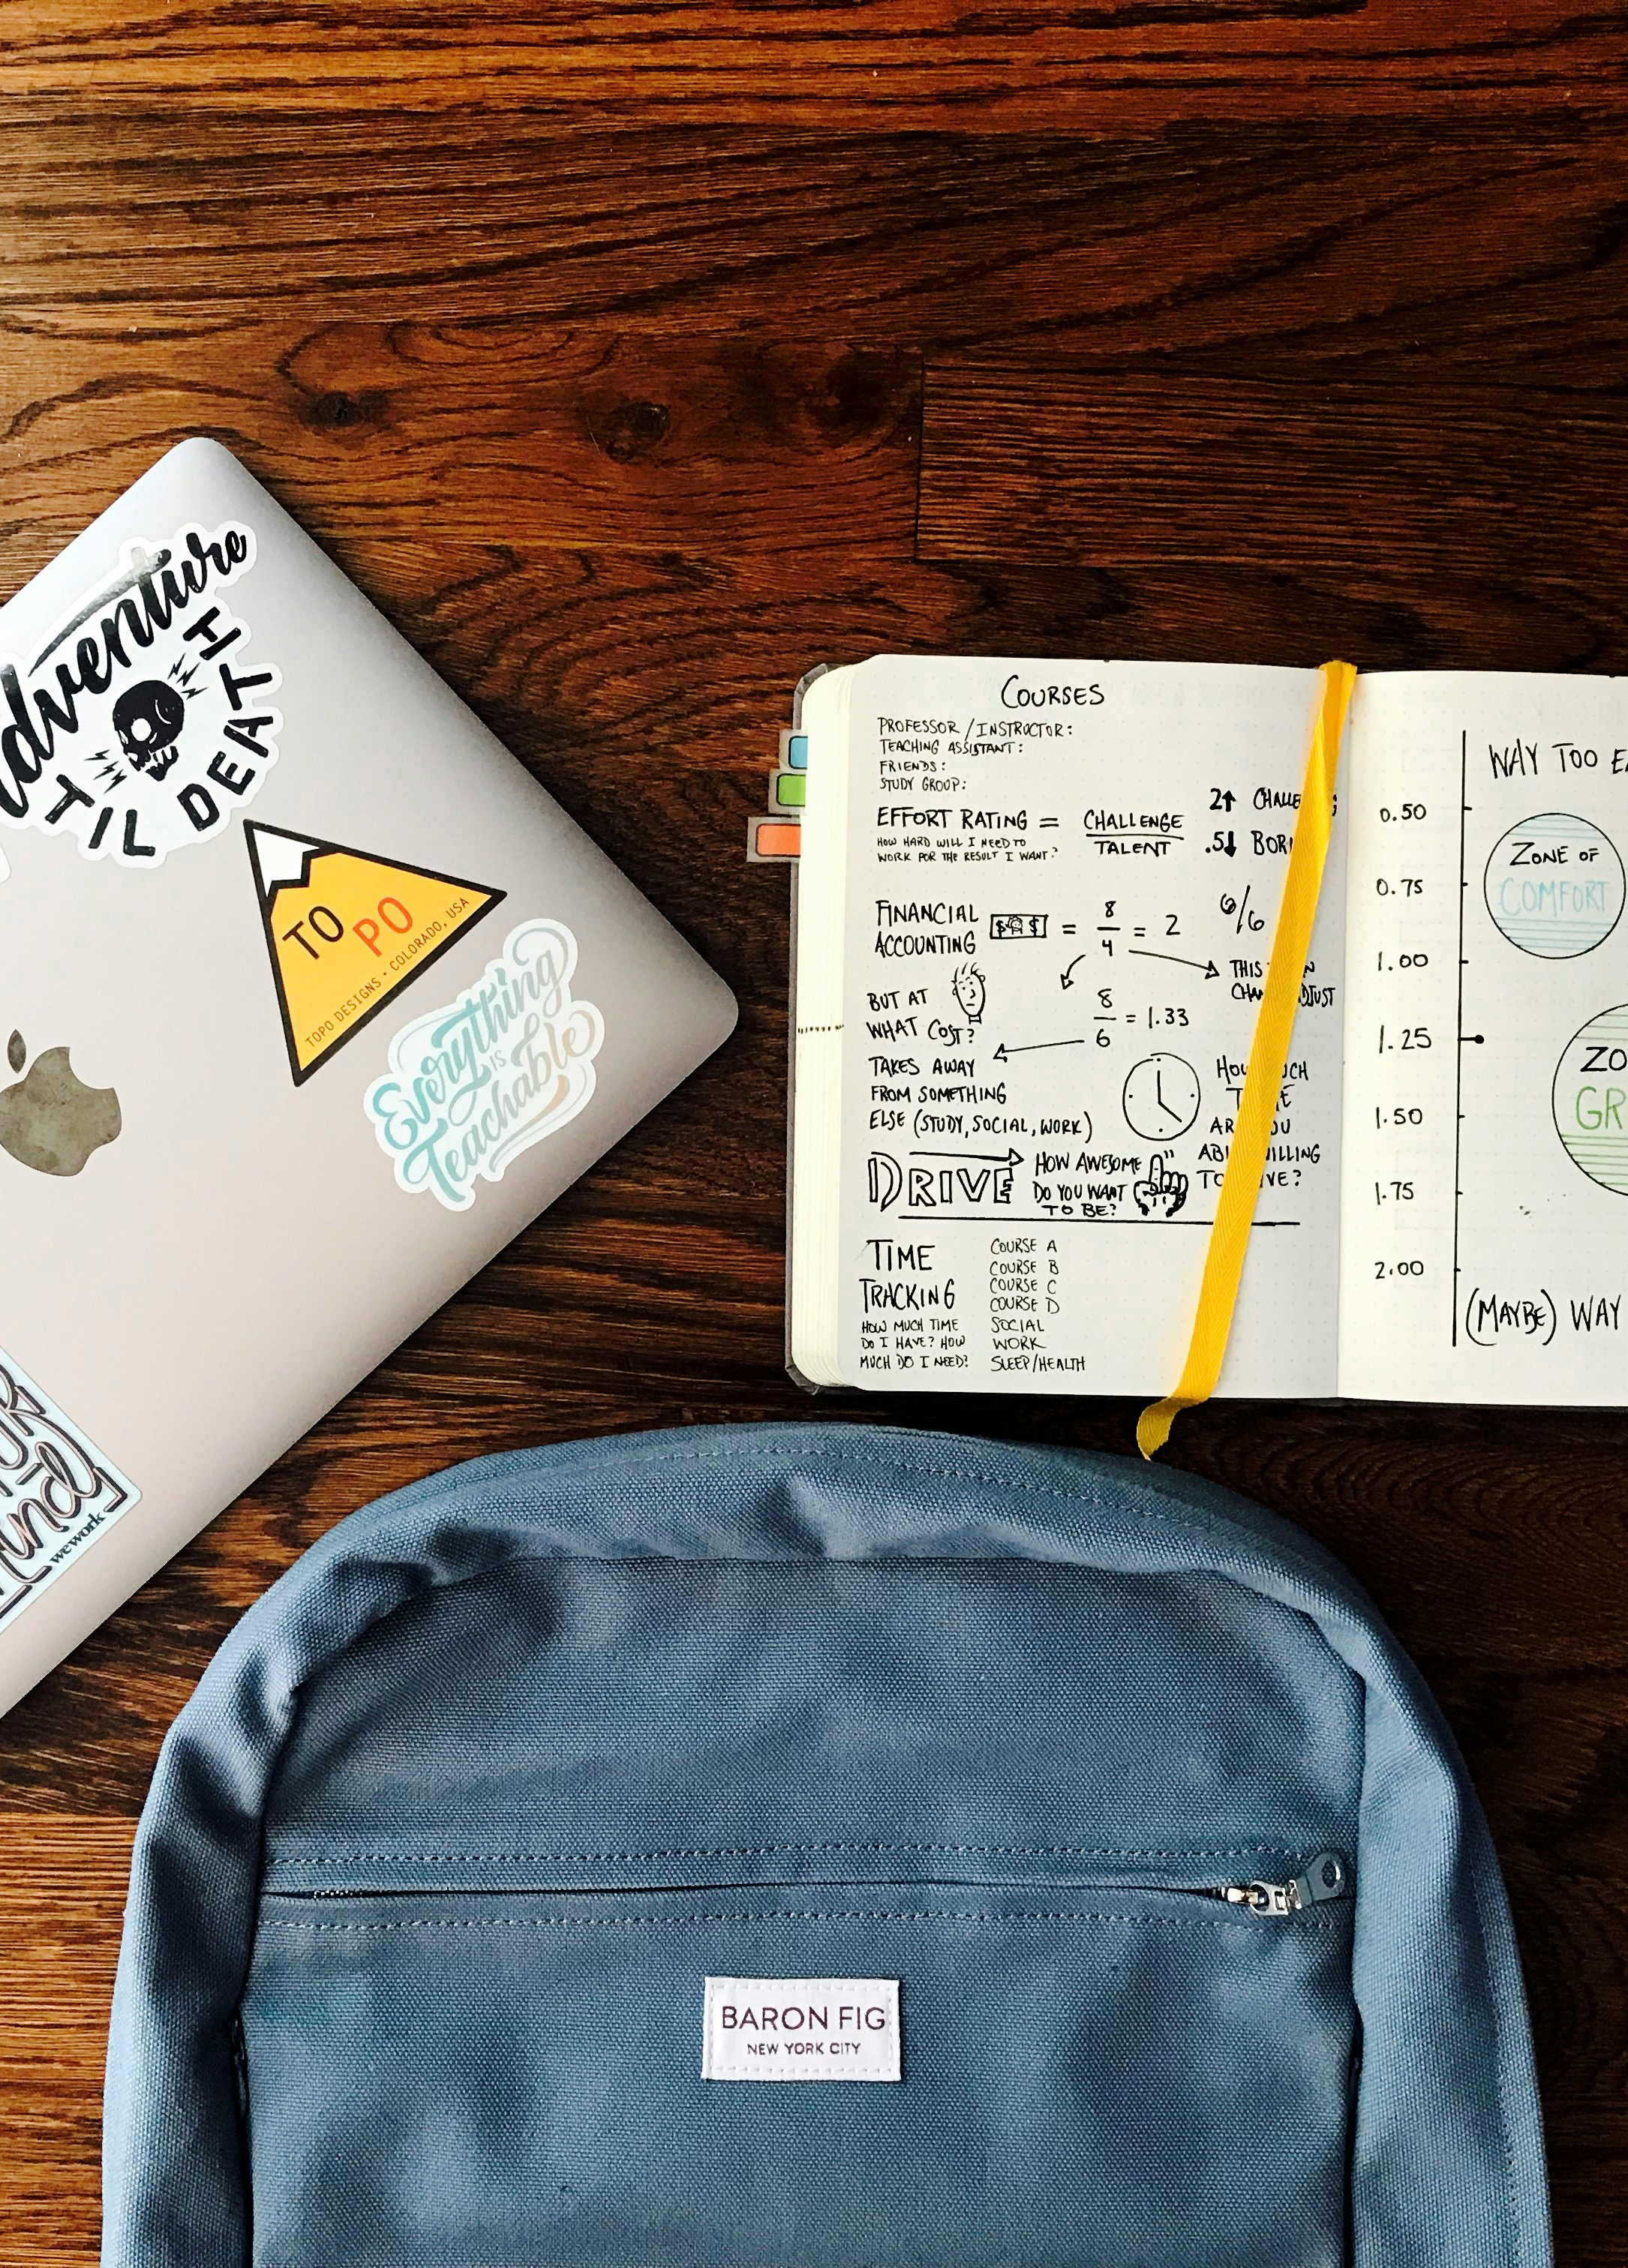 adventure
TIL DEATH
TO
PO
TOPO DESIGNS • COLORADO, USA
Everything
IS
Teachable
wework
COURSES
PROFESSOR / INSTRUCTOR:
TEACHING ASSISTANT:
FRIENDS:
STUDY GROUP:
EFFORT RATING = CHALLENGE / TALENT
HOW HARD WILL I NEED TO
WORK FOR THE RESULT I WANT?
2↑
.5↓
FINANCIAL
ACCOUNTING
$ $ = 8/4 = 2
6/6
THIS
BUT AT
WHAT COST?
8/6 = 1.33
TAKES AWAY
FROM SOMETHING
ELSE (STUDY, SOCIAL, WORK)
ARE YOU
DRIVE
HOW AWESOME
DO YOU WANT
TO BE?
TIME
TRACKING
HOW MUCH TIME
DO I HAVE? HOW
MUCH DO I NEED?
COURSE A
COURSE B
COURSE C
COURSE D
SOCIAL
WORK
SLEEP/HEALTH
WAY TOO
0.50
0.75
1.00
1.25
1.50
1.75
2.00
ZONE OF
COMFORT
ZO
GR
(MAYBE) WAY
BARON FIG
NEW YORK CITY